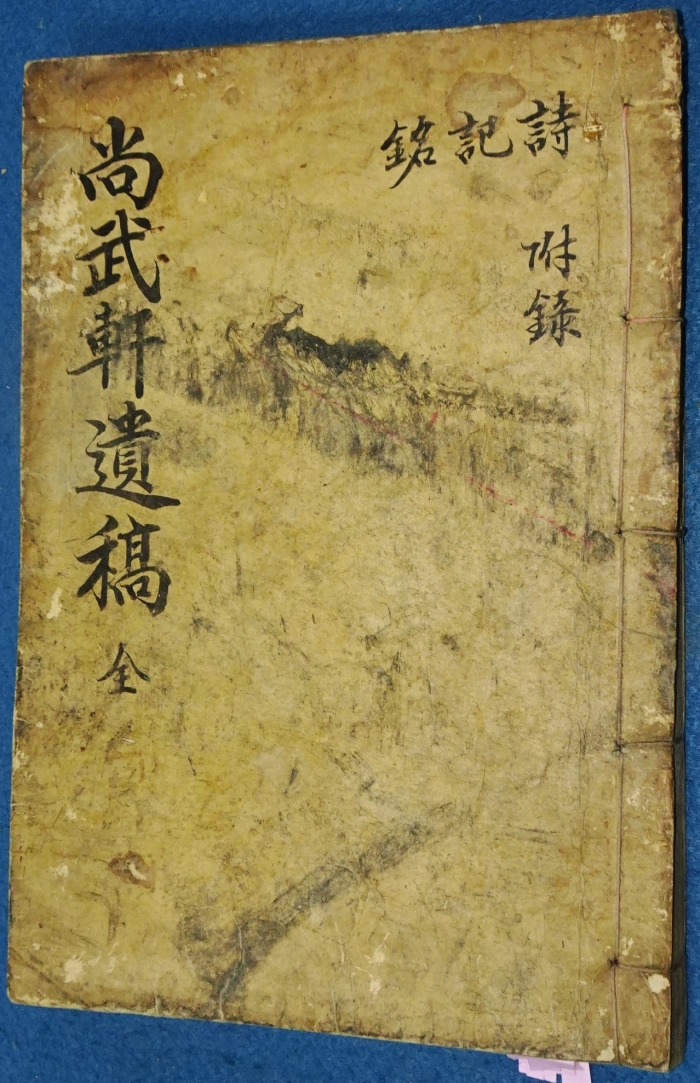 詩
記
銘
附錄
尚武軒遺稿 全